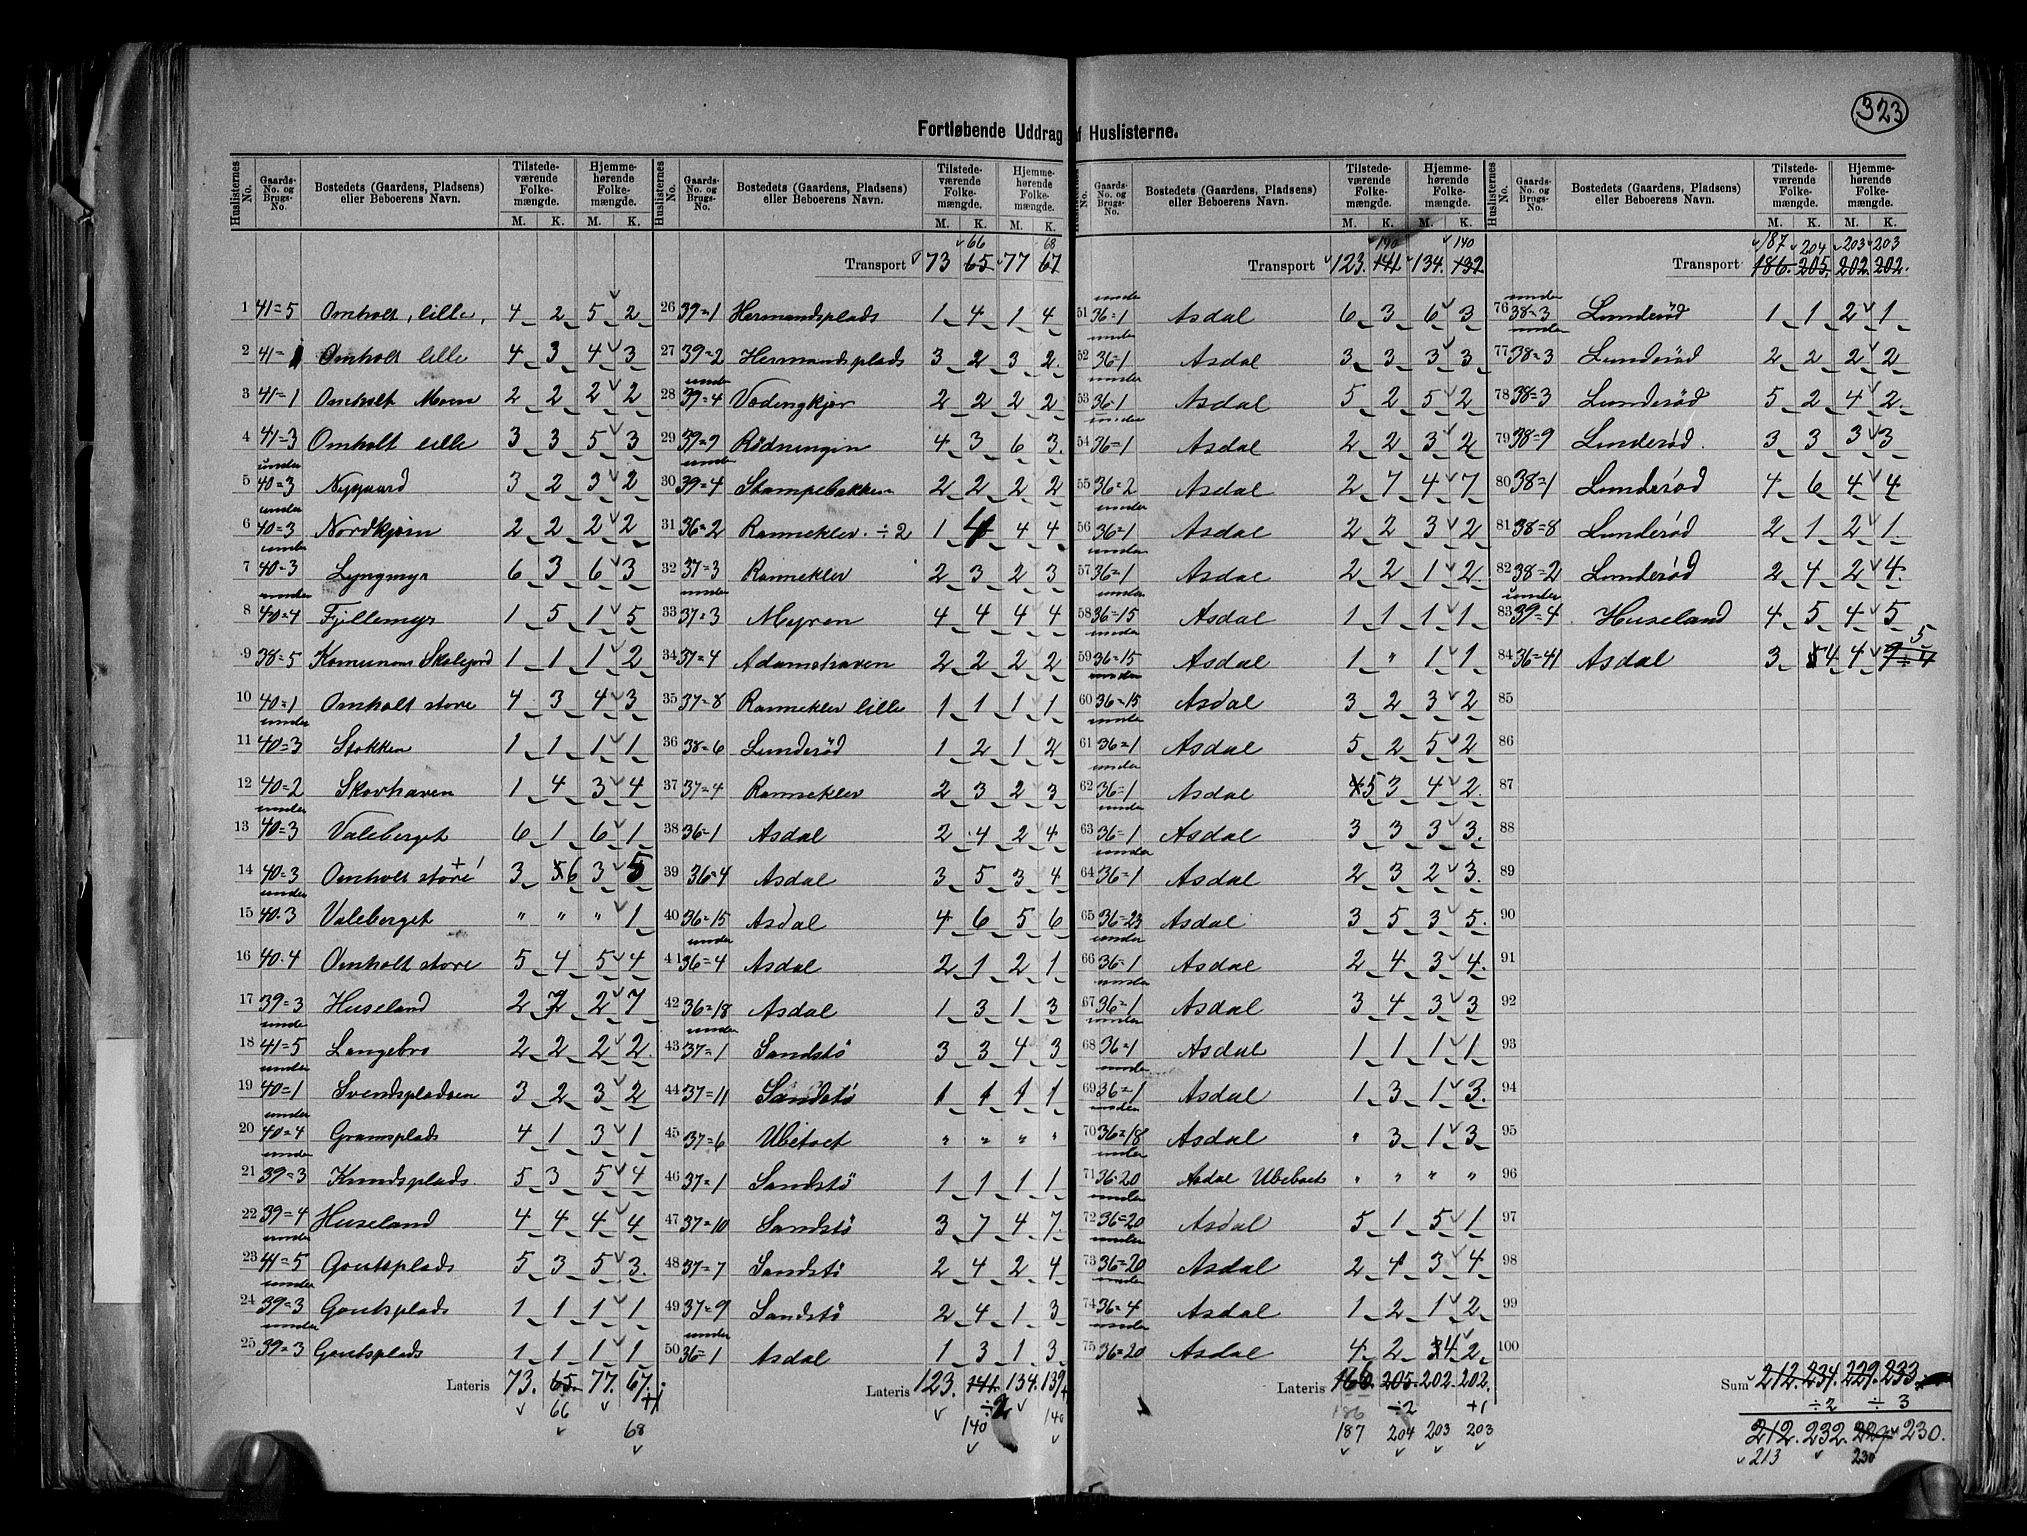 323
Fortløbende Uddrag af Huslisterne.
Huslisternes No. | Gaards-No. og Brugs-No. | Bostedets (Gaardens, Pladsens) eller Beboerens Navn. | Tilstedeværende Folkemængde. M. K. | Hjemmehørende Folkemængde. M. K.
1 41=5 Omholt, lille, 4 2 5 2
2 41=1 Omholt lille 4 3 4 3
3 41=1 Omholt Moen 2 2 2 2
4 41=3 Omholt lille 3 3 5 3
5 under 40=3 Nygaard 3 2 3 2
6 under 40=3 Nordkjern 2 2 2 2
7 under 40=3 Lyngmyr 6 3 6 3
8 under 40=4 Fjellemyr 1 5 1 5
9 38=5 Komunens Skolejord 1 1 1 2
10 40=1 Omholt store 4 3 4 3
11 under 40=3 Stokken 1 1 1 1
12 40=2 Skovhaven 1 4 3 4
13 under 40=3 Valeberget 6 1 6 1
14 40=3 Omholt store 3 5 6 3 5
15 under 40=3 Valeberget " " " 1
16 40=4 Omholt store 5 4 5 4
17 39=3 Huseland 2 7 2 7
18 under 41=5 Langebro 2 2 2 2
19 under 40=1 Svendspladsen 3 2 3 2
20 under 40=4 Gramsplads 4 1 3 1
21 under 39=3 Knudsplads 5 3 5 4
22 39=4 Huseland 4 4 4 4
23 under 41=5 Goutsplads 5 3 5 3
24 under 39=3 Goutsplads 1 1 1 1
25 under 39=3 Goutsplads 1 1 1 1
Lateris 73. 65. 77. 67. +1
66 68
Transport 73 65 77 67
66 68
26 39=1 Hermandsplads 1 4 1 4
27 39=2 Hermandsplads 3 2 3 2
28 under 39=4 Vodingkjær 2 2 2 2
29 39=9 Rødningen 4 3 6 3
30 under 39=4 Stampebakken 2 2 2 2
31 36=2 Ranneklev ÷2 1 4 4 4
32 37=3 Ranneklev 2 3 2 3
33 under 37=3 Myren 4 4 4 4
34 37=4 Adamshaven 2 2 2 2
35 37=8 Ranneklev lille 1 1 1 1
36 38=6 Lunderød 1 2 1 2
37 37=4 Ranneklev 2 3 2 3
38 36=1 Asdal 2 4 2 4
39 36=4 Asdal 3 5 3 4
40 36=15 Asdal 4 6 5 6
41 under 36=4 Asdal 2 1 2 1
42 36=18 Asdal 1 3 1 3
43 under 37=1 Sandstø 3 3 4 3
44 37=11 Sandstø 1 1 1 1
45 37=6 Ubeboet " " " "
46 37=1 Sandstø 1 1 1 1
47 37=10 Sandstø 3 7 4 7
48 37=7 Sandstø 2 4 2 4
49 37=9 Sandstø 2 4 1 3
50 under 36=1 Asdal 1 3 1 3
Lateris 123. 141. 134. 139 +1
÷2
140 140
Huslisternes No. | Gaards-No. og Brugs-No. | Bostedets (Gaardens, Pladsens) eller Beboerens Navn. | Tilstedeværende Folkemængde. M. K. | Hjemmehørende Folkemængde. M. K.
140 140
Transport 123. 141. 134. 132
51 under 36=1 Asdal 6 3 6 3
52 under 36=1 Asdal 3 3 3 3
53 under 36=1 Asdal 5 2 5 2
54 under 36=1 Asdal 2 2 3 2
55 36=2 Asdal 2 7 4 7
56 under 36=1 Asdal 2 2 3 2
57 under 36=1 Asdal 2 2 1 2
58 under 36=15 Asdal 1 1 1 1
59 under 36=15 Asdal 1 " 1 1
60 under 36=15 Asdal 3 2 3 2
61 under 36=1 Asdal 5 2 5 2
62 under 36=1 Asdal 4 5 3 4 2
63 under 36=1 Asdal 3 3 3 3
64 under 36=1 Asdal 2 3 2 3
65 36=23 Asdal 3 5 3 5
66 under 36=1 Asdal 2 4 3 4
67 under 36=1 Asdal 3 4 3 3
68 under 36=1 Asdal 1 1 1 1
69 under 36=1 Asdal 1 3 1 3
70 under 36=18 Asdal " 3 1 3
71 under 36=20 Asdal Ubeboet " " " "
72 under 36=20 Asdal 5 1 5 1
73 under 36=20 Asdal 2 4 3 4
74 under 36=4 Asdal 1 2 1 2
75 under 36=20 Asdal 4 2 3 4 2
Lateris 166. 205. 202. 202.
186 ÷2 +1
187 204 203 203
187 204 203 203
Transport 186. 205. 202. 202.
76 under 38=3 Lunderød 1 1 2 1
77 under 38=3 Lunderød 2 2 2 2
78 38=3 Lunderød 5 2 4 2
79 38=9 Lunderød. 3 3 3 3
80 38=1 Lunderød 4 6 4 4
81 38=8 Lunderød 2 1 2 1
82 38=2 Lunderød 2 4 2 4
83 under 39=4 Huseland 4 5 4 5
84 36=41 Asdal 3 4 4 5
85
86
87
88
89
90
91
92
93
94
95
96
97
98
99
100
Sum 212. 234. 229. 233.
÷2 ÷3
212. 232. 229 230.
213 230